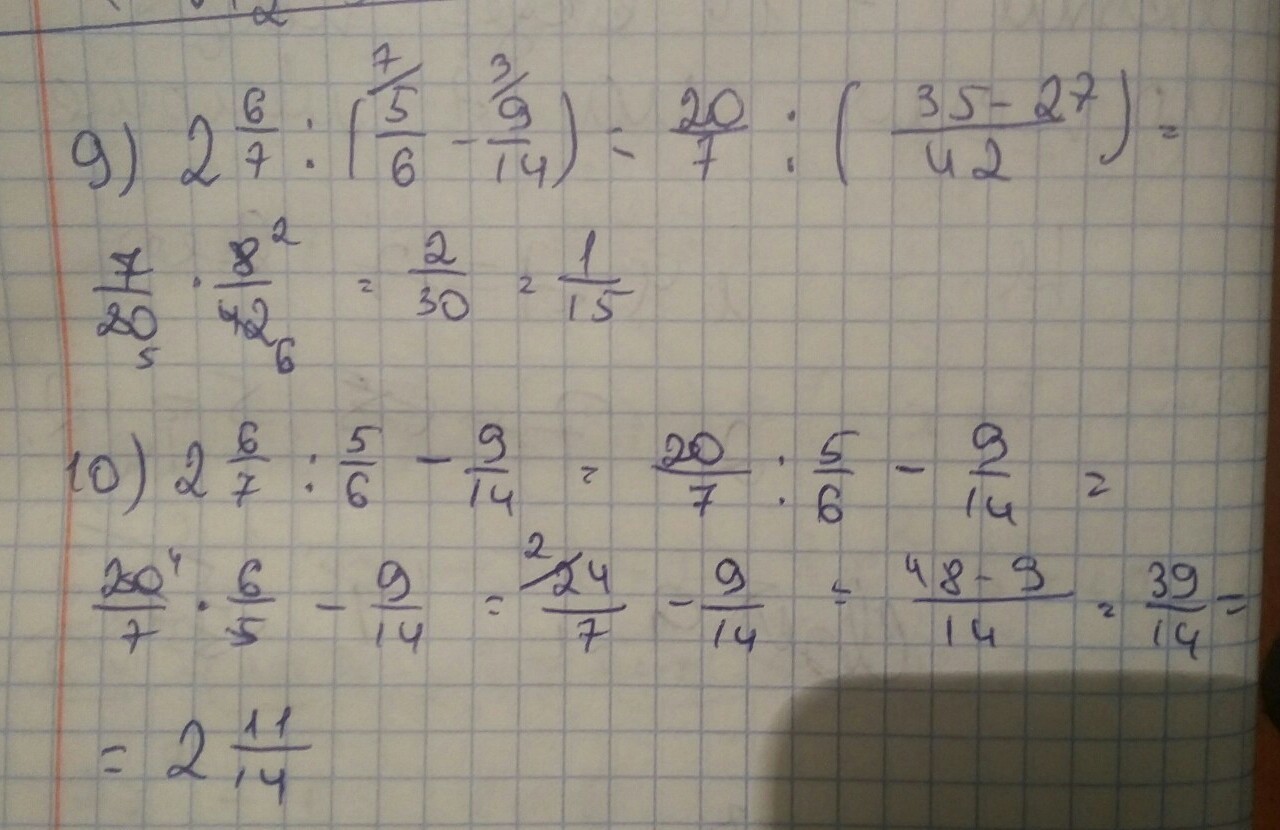 9) 2 6/7 : (5/6 - 9/14) = 20/7 : (35-27/42) =
7/20 · 8/42 = 2/30 = 1/15
10) 2 6/7 : 5/6 - 9/14 = 20/7 : 5/6 - 9/14 =
20/7 · 6/5 - 9/14 = 24/7 - 9/14 = 48-9/14 = 39/14 =
= 2 11/14